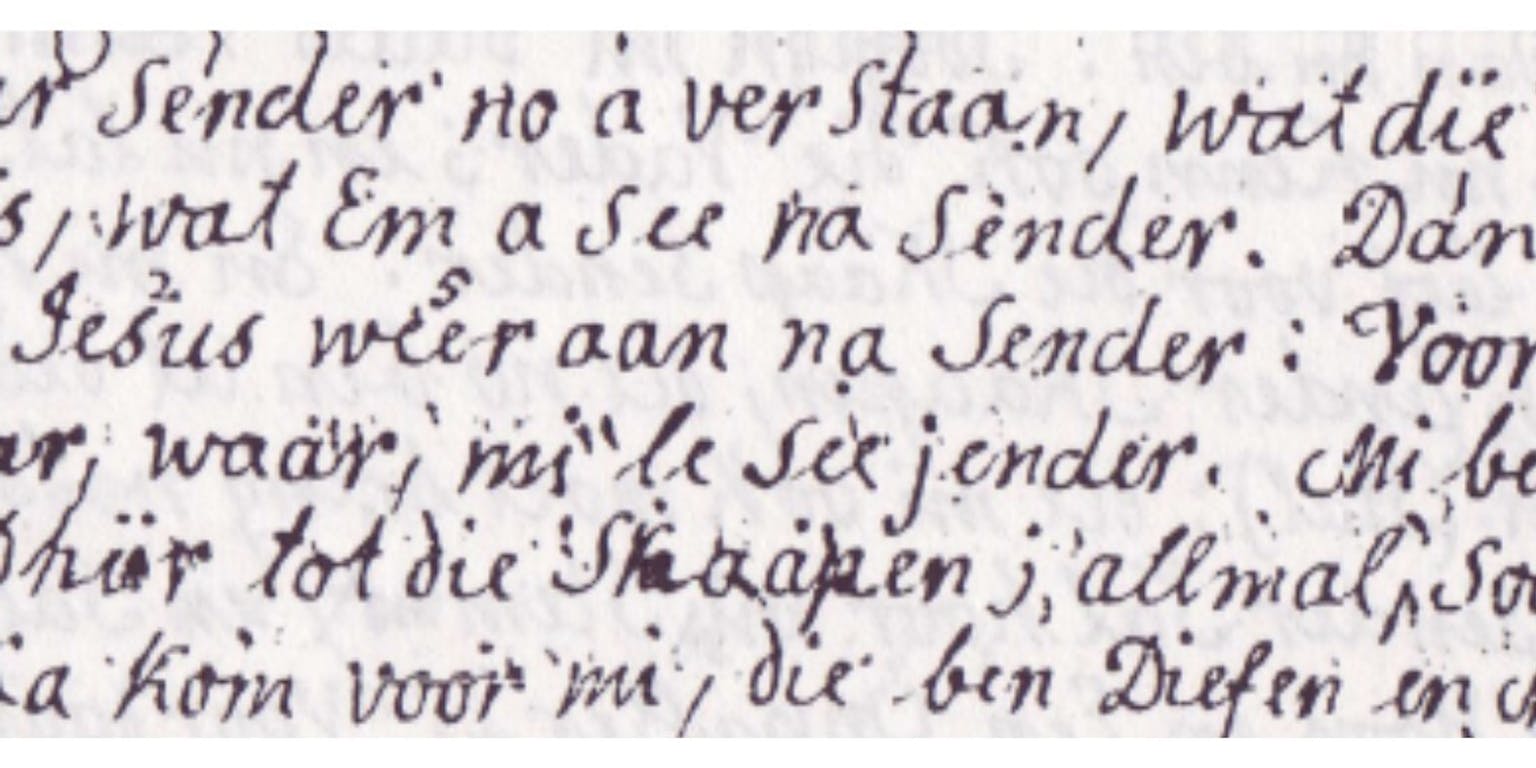 Sender no a verstaan, wat die
wat Em a see na Sender. Dan
Jesus weer aan na Sender: Voor
waar, mi le see jender. Mi be
tot die Skaapen; allmal, So
Ka Kom voor mi, die ben Diefen en